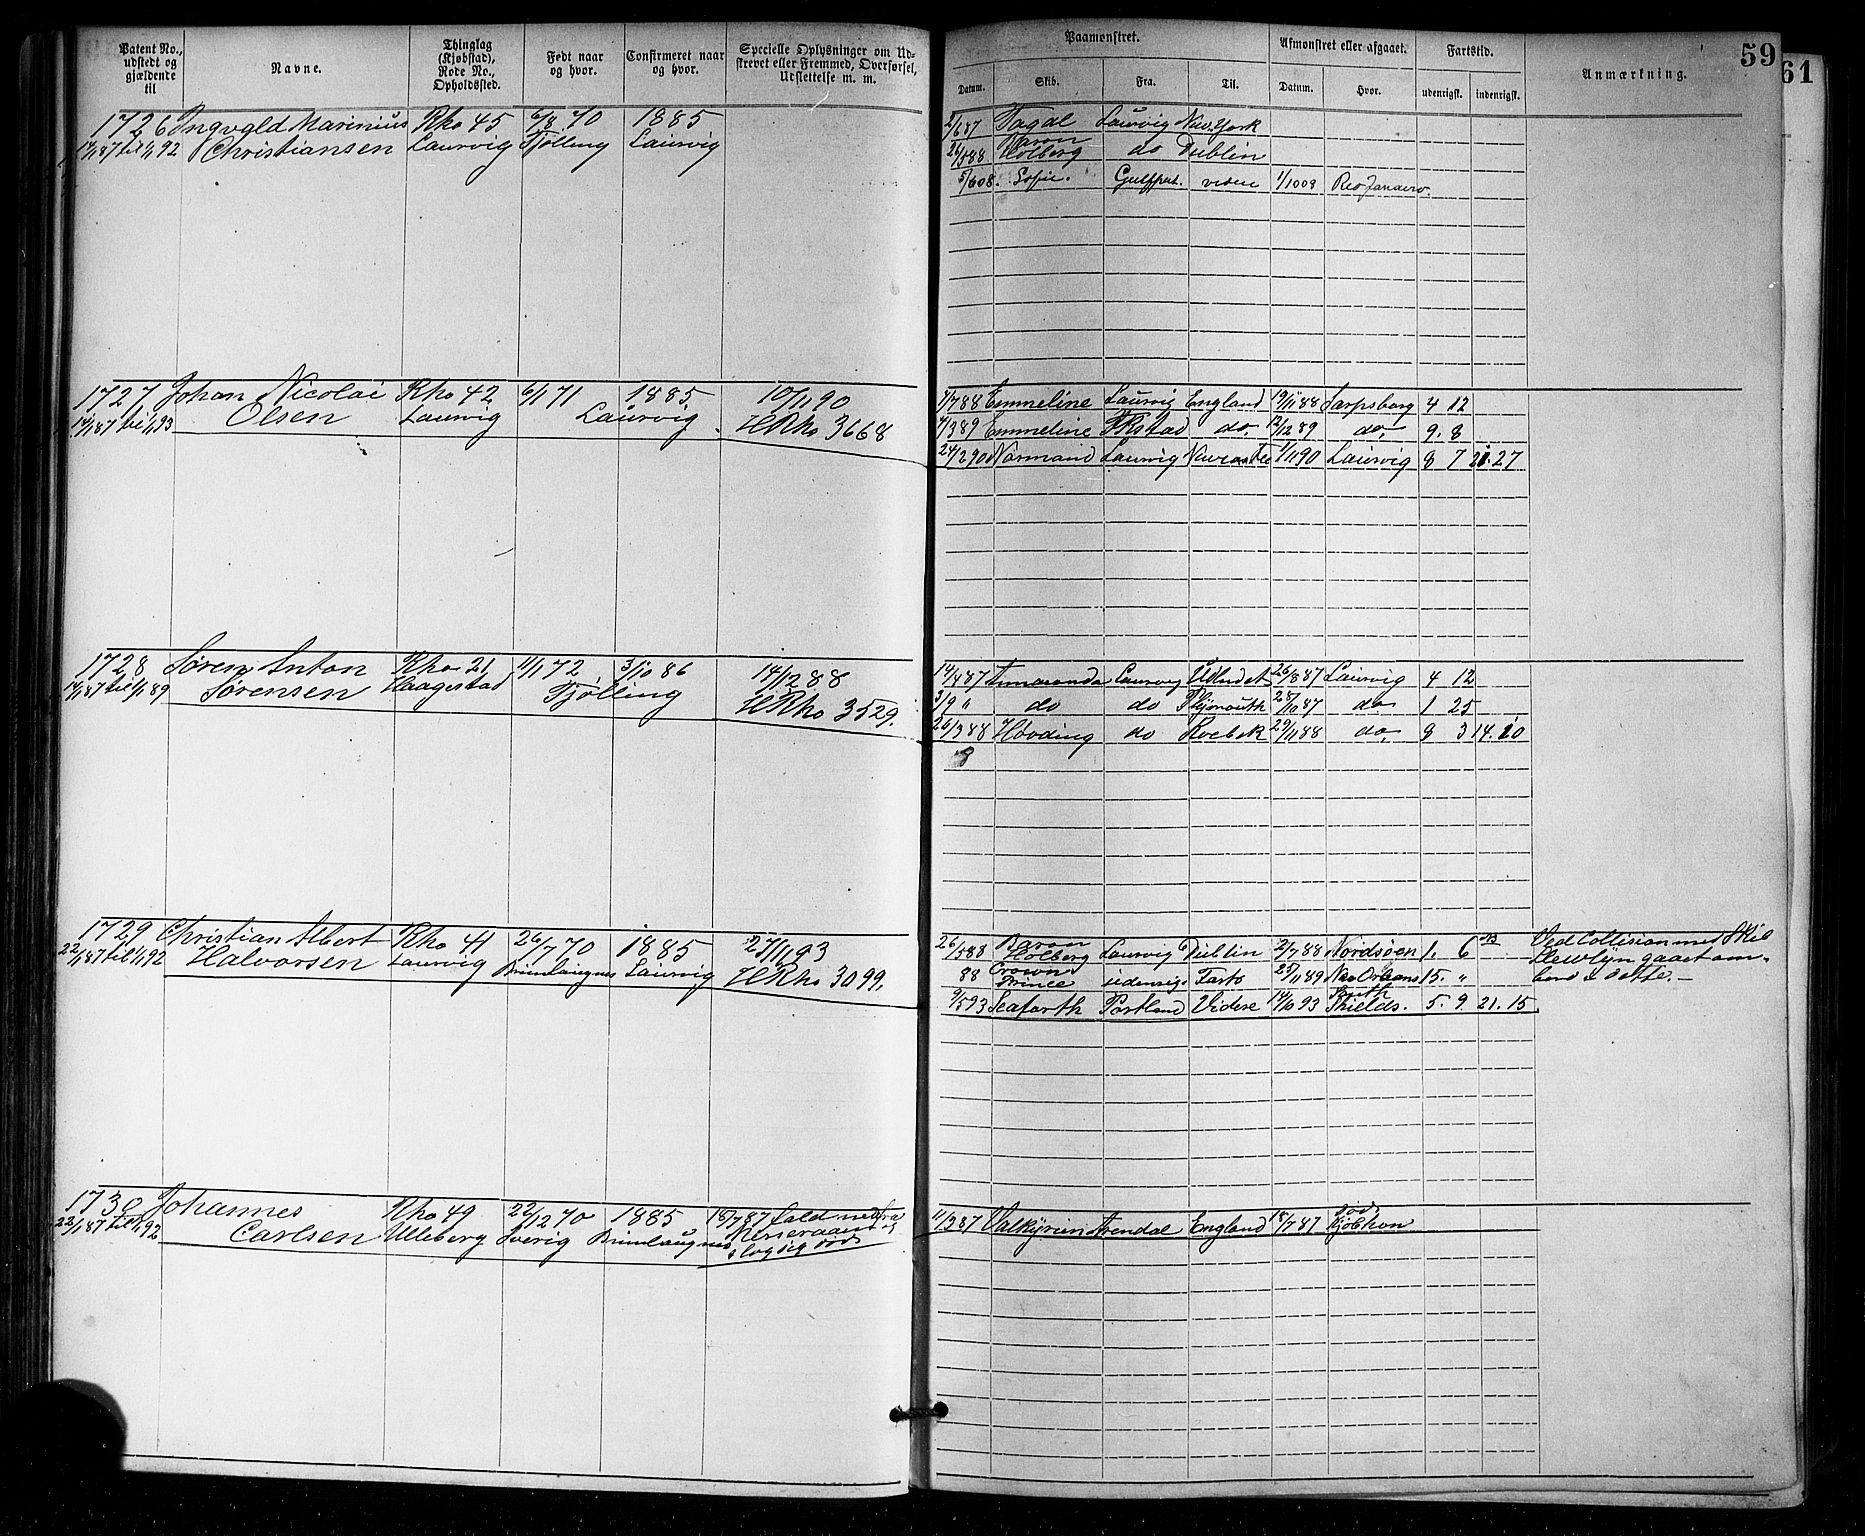 59
61
Patent No., udstedt og gjældende til
Navne.
Thinglag (Kjøbstad), Rode No., Opholdssted.
Født naar og hvor.
Confirmeret naar og hvor.
Specielle Oplysninger om Udskrevet eller Fremmed, Overførsel, Udslettelse m. m.
Paamønstret.
Afmønstret eller afgaaet.
Fartstid.
Anmærkning.
Datum. Skib. Fra. Til. Datum. Hvor. udenrigsk. indenrigsk.
1726 Ingvald Marinius Rho 45 6/8 70 1885
14/1 87 til 1/1 92 Christiansen Laurvig Tjølling Laurvig
2/6 87 Fagal Laurvig New York
26/5 88 Baron Holberg do Dublin
5/6 08. Sofie. Gulfport. videre 1/10 09 Rio Janaero.
1727 Johan Nicolai Rho 42 6/1 71 1885 10/11 90
14/1 87 til 1/1 93 Olsen Laurvig Laurvig HRho 3668
1/7 88 Emmeline Laurvig England 19/11 88 Sarpsborg 4 12
7/3 89 Emmeline FKstad do. 12/12 89 do. 9. 8
24/2 90 Normand Laurvig 1/11 90 Laurvig 8 7 21. 27
1728 Søren Anton Rho 21 11/1 72 3/10 86 14/12 88
14/1 87 til 1/1 89 Sørensen Haagestad Tjølling HRho 3529.
14/4 87 Amaranda Laurvig Udlndet 26/8 87 Laurvig 4 12
3/9 " do do Plymouth 28/10 87 do 1 25
26/3 88 Høvding do 29/11 88 do. 8 3 14. 10
1729 Christian Albert Rho 41 26/7 70 1885 27/11 93
22/1 87 til 1/1 92 Halvorsen Laurvig Brunlaugnes Laurvig HRho 3099.
26/5 88 Baron Holberg Laurvig Dublin 2/7 88 Nordsøen 1. 6 Ved Collision med Skib
88 Crown Prince udenrigs Farts 25/11 89 New Orleans 15. " Llewlyn gaaet om-
9/5 93 Seaforth Portland Videre 14/10 93 South Shields. 5. 9. 21. 15. bord i dette.—
1730 Johannes Rho 49 22/12 70 1885 18/7 87 fald ned fra
22/1 87 til 1/1 92 Carlsen Ulleberg Sverig Brunlaugnes Mersraaen & slog sig død
11/3 87 Valkyrien Arendal England 18/7 87 død Kjøbhvn